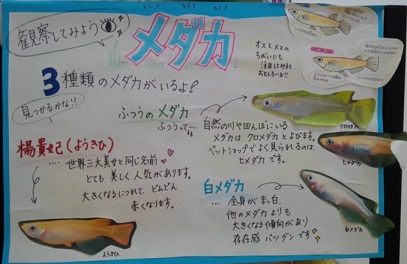 観察してみよう
メダカ
オスとメスの
ちがいにも
注目してみると
おもしろいよ!!
3種類のメダカがいるよ!
見つかるかな!?
ふつうのメダカ
ふつうって…
自然の川や田んぼにいる
メダカは クロメダカ とよばれます。
ペットショップで よく見られるのは
ヒメダカ です。
クロメダカ
ヒメダカ
楊貴妃(ようきひ)
… 世界三大美女と同じ名前
とても 美しく 人気があります。
大きくなるにつれて、どんどん
赤くなります。
ようきひ
白メダカ
… 全身が まっ白。
他のメダカ よりも
大きくなる傾向があり
存在感 バツグン です
白メダカ